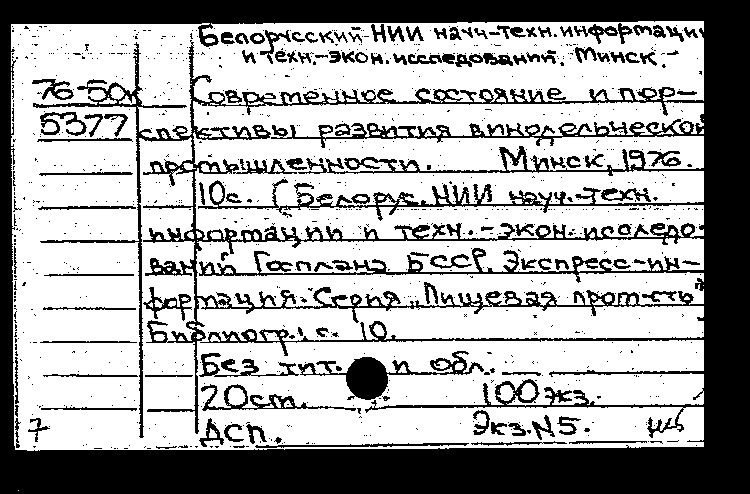 Белорусский НИИ науч-техн. информации
и техн.-экон. исследований. Минск.-
76-50к Современное состояние и пер-
5377 спективы развития винодельческой
промышленности. Минск, 1976.
10с. (Белорус. НИИ науч.-техн.
информации и техн.-экон. исследо-
ваний Госплана БССР. Экспресс-ин-
формация. Серия „Пищевая пром-сть"
Библиогр.: с. 10.
Без тит. л. и обл.
20см. 100 экз.
7 ДСП. Экз.N5.